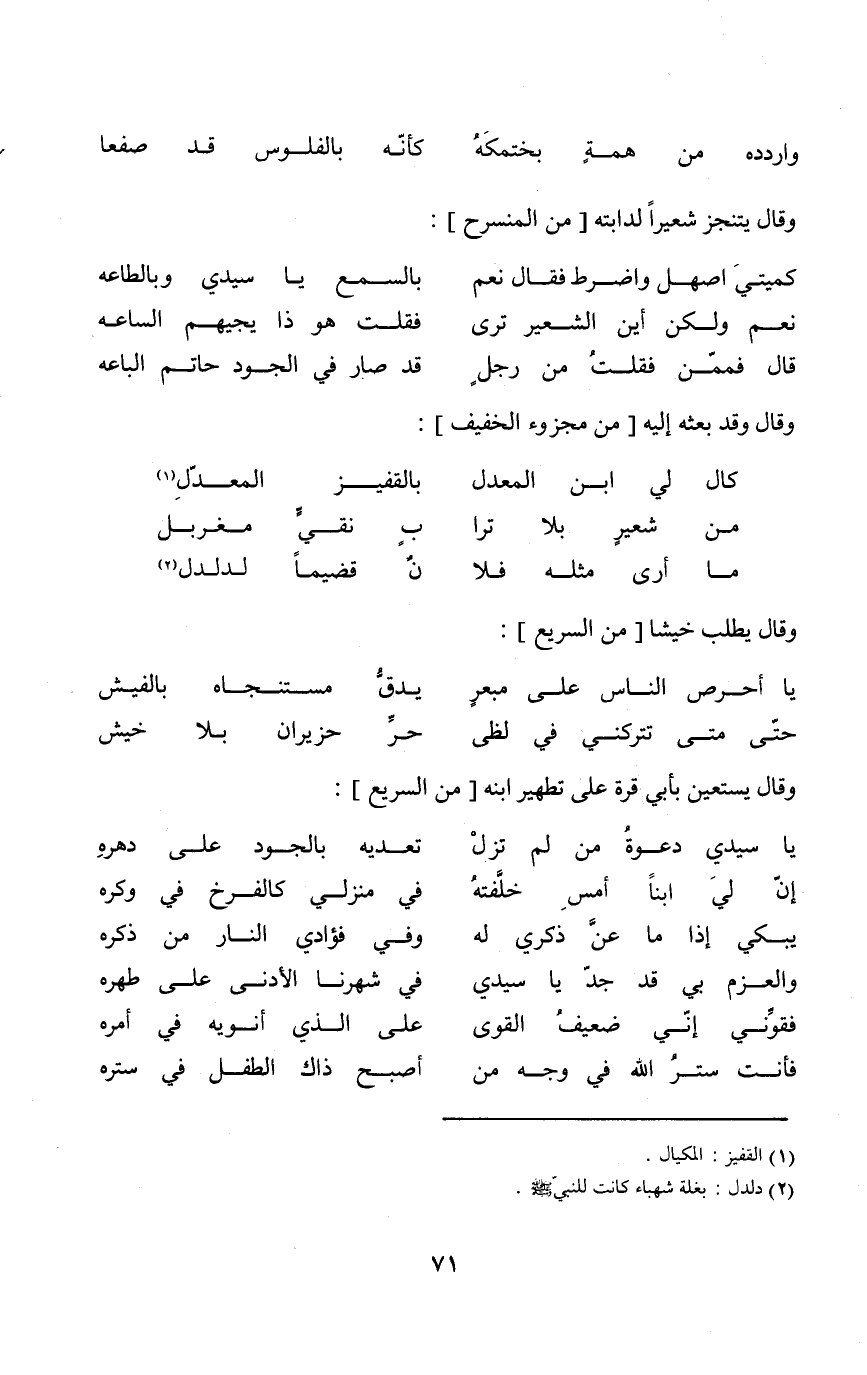 واردده من همةٍ بختمكَهُ كأنّه بالفلوس قد صفعا
وقال يتنجز شعيراً لدابته [ من المنسرح ] :
كميتيَ اصهل واضرط فقال نعم بالسمع يا سيدي وبالطاعه
نعم ولكن أين الشعير ترى فقلت هو ذا يجيهم الساعه
قال فممّن فقلتُ من رجلٍ قد صار في الجود حاتم الباعه
وقال وقد بعثه إليه [ من مجزوء الخفيف ] :
كال لي ابن المعدل بالقفيز المعدّلِ(١)
من شعيرٍ بلا ترا بٍ نقيٍّ مغربل
ما أرى مثله فلا نٌ قضيماً لدلدل(٢)
وقال يطلب خيشا [ من السريع ] :
يا أحرص الناس على مبعرٍ يدقُّ مستنجاه بالفيش
حتّى متى تتركني في لظى حرِّ حزيران بلا خيش
وقال يستعين بأبي قرة على تطهير ابنه [ من السريع ] :
يا سيدي دعوةُ من لم تزلْ تعديه بالجود على دهرهِ
إنّ ليَ ابناً أمسِ خلَّفتهُ في منزلي كالفرخ في وكره
يبكي إذا ما عنَّ ذكري له وفي فؤادي النار من ذكره
والعزم بي قد جدّ يا سيدي في شهرنا الأدنى على طهره
فقوِّني إنّي ضعيفُ القوى على الذي أنويه في أمره
فأنت سترُ الله في وجه من أصبح ذاك الطفل في ستره
(١) القفيز : المكيال .
(٢) دلدل : بغلة شهباء كانت للنبيّ ﷺ .
٧١